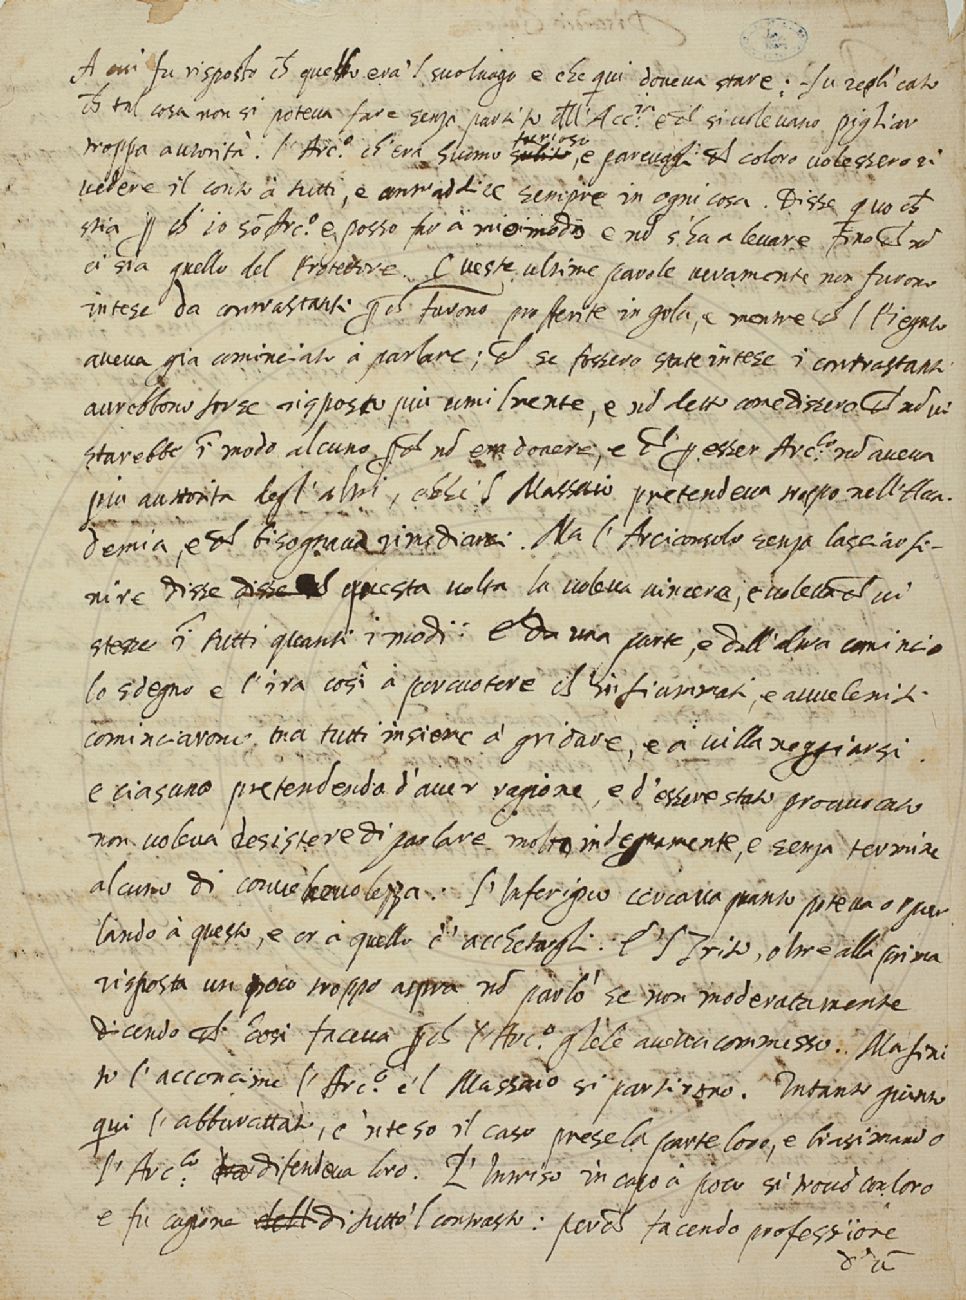 A cui fu risposto ch̃ questo era 'l suo luogo e che qui doveva stare: fu replicato
ch̃ tal cosa non si poteva fare senza partito dell' Acc.ª e ch̃ si volevano pigliar
troppa autorità. l'Arc.º ch'era huomo subito furioso, e parevagli ch̃ coloro volessero ri
vedere il conto à tutti, e contraddice sempre in ogni cosa. Disse quo ch̃
stia p̃ ch̃ io sõ Arc.º e posso far à mio modo e nõ s'ha a levare fino ch̃ nõ
ci sia quello del Protettore. Queste ultime parole veramente non furono
intese da contrastanti p̃ch̃ furono profferite in gola, e mentre ch̃ l'Rigido
aveva già cominciato à parlare; ch̃ se fossero state intese i contrastanti
aurebbono forse risposto più umilmente, e nõ detto come dissero ch̃ nõ vi
starebbe ĩ modo alcuno p̃ch̃ nõ era dovere, e ch̃ p̃ esser Arc.º nõ aveva
più autorità degl'altri, e ch̃ 'l Massaio pretendeva troppo nell'Acca-
demia, e ch̃ bisognava rimediarci. Ma l'Arciconsolo senza lasciar fi-
nire disse disse ch̃ questa volta la voleva vincere, e voleva ch̃ vi
stesse ĩ tutti quanti i modi: E da una parte, e dall'altra cominciò
lo sdegno e l'ira così à percuotere ch̃ infiammati, e avveleniti
cominciarono tra tutti insieme à gridare, e à villaneggiarsi.
e ciascuno pretendendo d'aver ragione, e d'essere stato provocato
non voleva desistere di parlare molto indegnamente, e senza termine
alcuno di convenevolezza. l'Inferigno cercava quanto poteva or par
lando à questo, e or à quello d'acchetargli. E 'l Trito, oltre alla prima
risposta un poco troppo aspra nõ parlò se non moderatamente
dicendo ch̃ così faceva p̃ch̃ l'Arc.º gliele aveva commesso. Ma fini
to l'acconcime l'Arc.º e 'l Massaio si partirono. Intanto giunto
qui l'abburattato, e 'nteso il caso prese la parte loro, e biasimando
l'Arc.º difendeva loro. L'Inriso in capo à poco si trovò con loro
e fu cagione dell di tutto 'l contrasto: perch̃ facendo professione
d'ũ